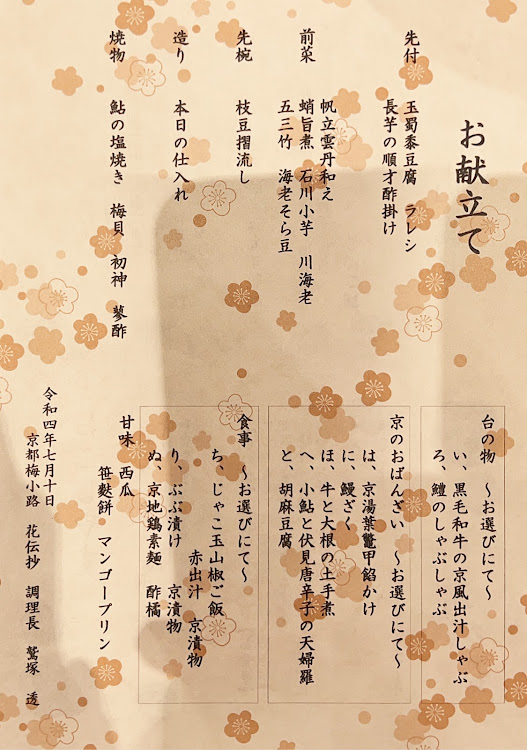 お献立て
先付　玉蜀黍豆腐　ラレシ
長芋の順才酢掛け
前菜　帆立雲丹和え
蛸旨煮　石川小芋　川海老
五三竹　海老そら豆
先椀　枝豆摺流し
造り　本日の仕入れ
焼物　鮎の塩焼き　梅貝　初神　蓼酢
台の物　〜お選びにて〜
い、黒毛和牛の京風出汁しゃぶ
ろ、鱧のしゃぶしゃぶ
京のおばんざい　〜お選びにて〜
は、京湯葉鼈甲餡かけ
に、鰻ざく
ほ、牛と大根の土手煮
へ、小鮎と伏見唐辛子の天婦羅
と、胡麻豆腐
食事　〜お選びにて〜
ち、じゃこ玉山椒ご飯
赤出汁　京漬物
り、ぶぶ漬け　京漬物
ぬ、京地鶏素麺　酢橘
甘味　西瓜
笹麩餅　マンゴープリン
令和四年七月十日
京都梅小路　花伝抄　調理長　鷲塚　透